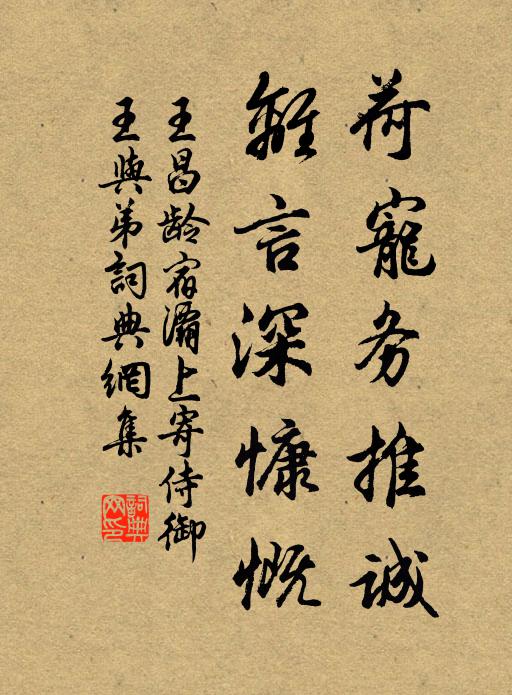 荷寵务推誠
離言深慷慨
王昌龄宿灞上寄侍御
玙弟詞典網集
詞典網印